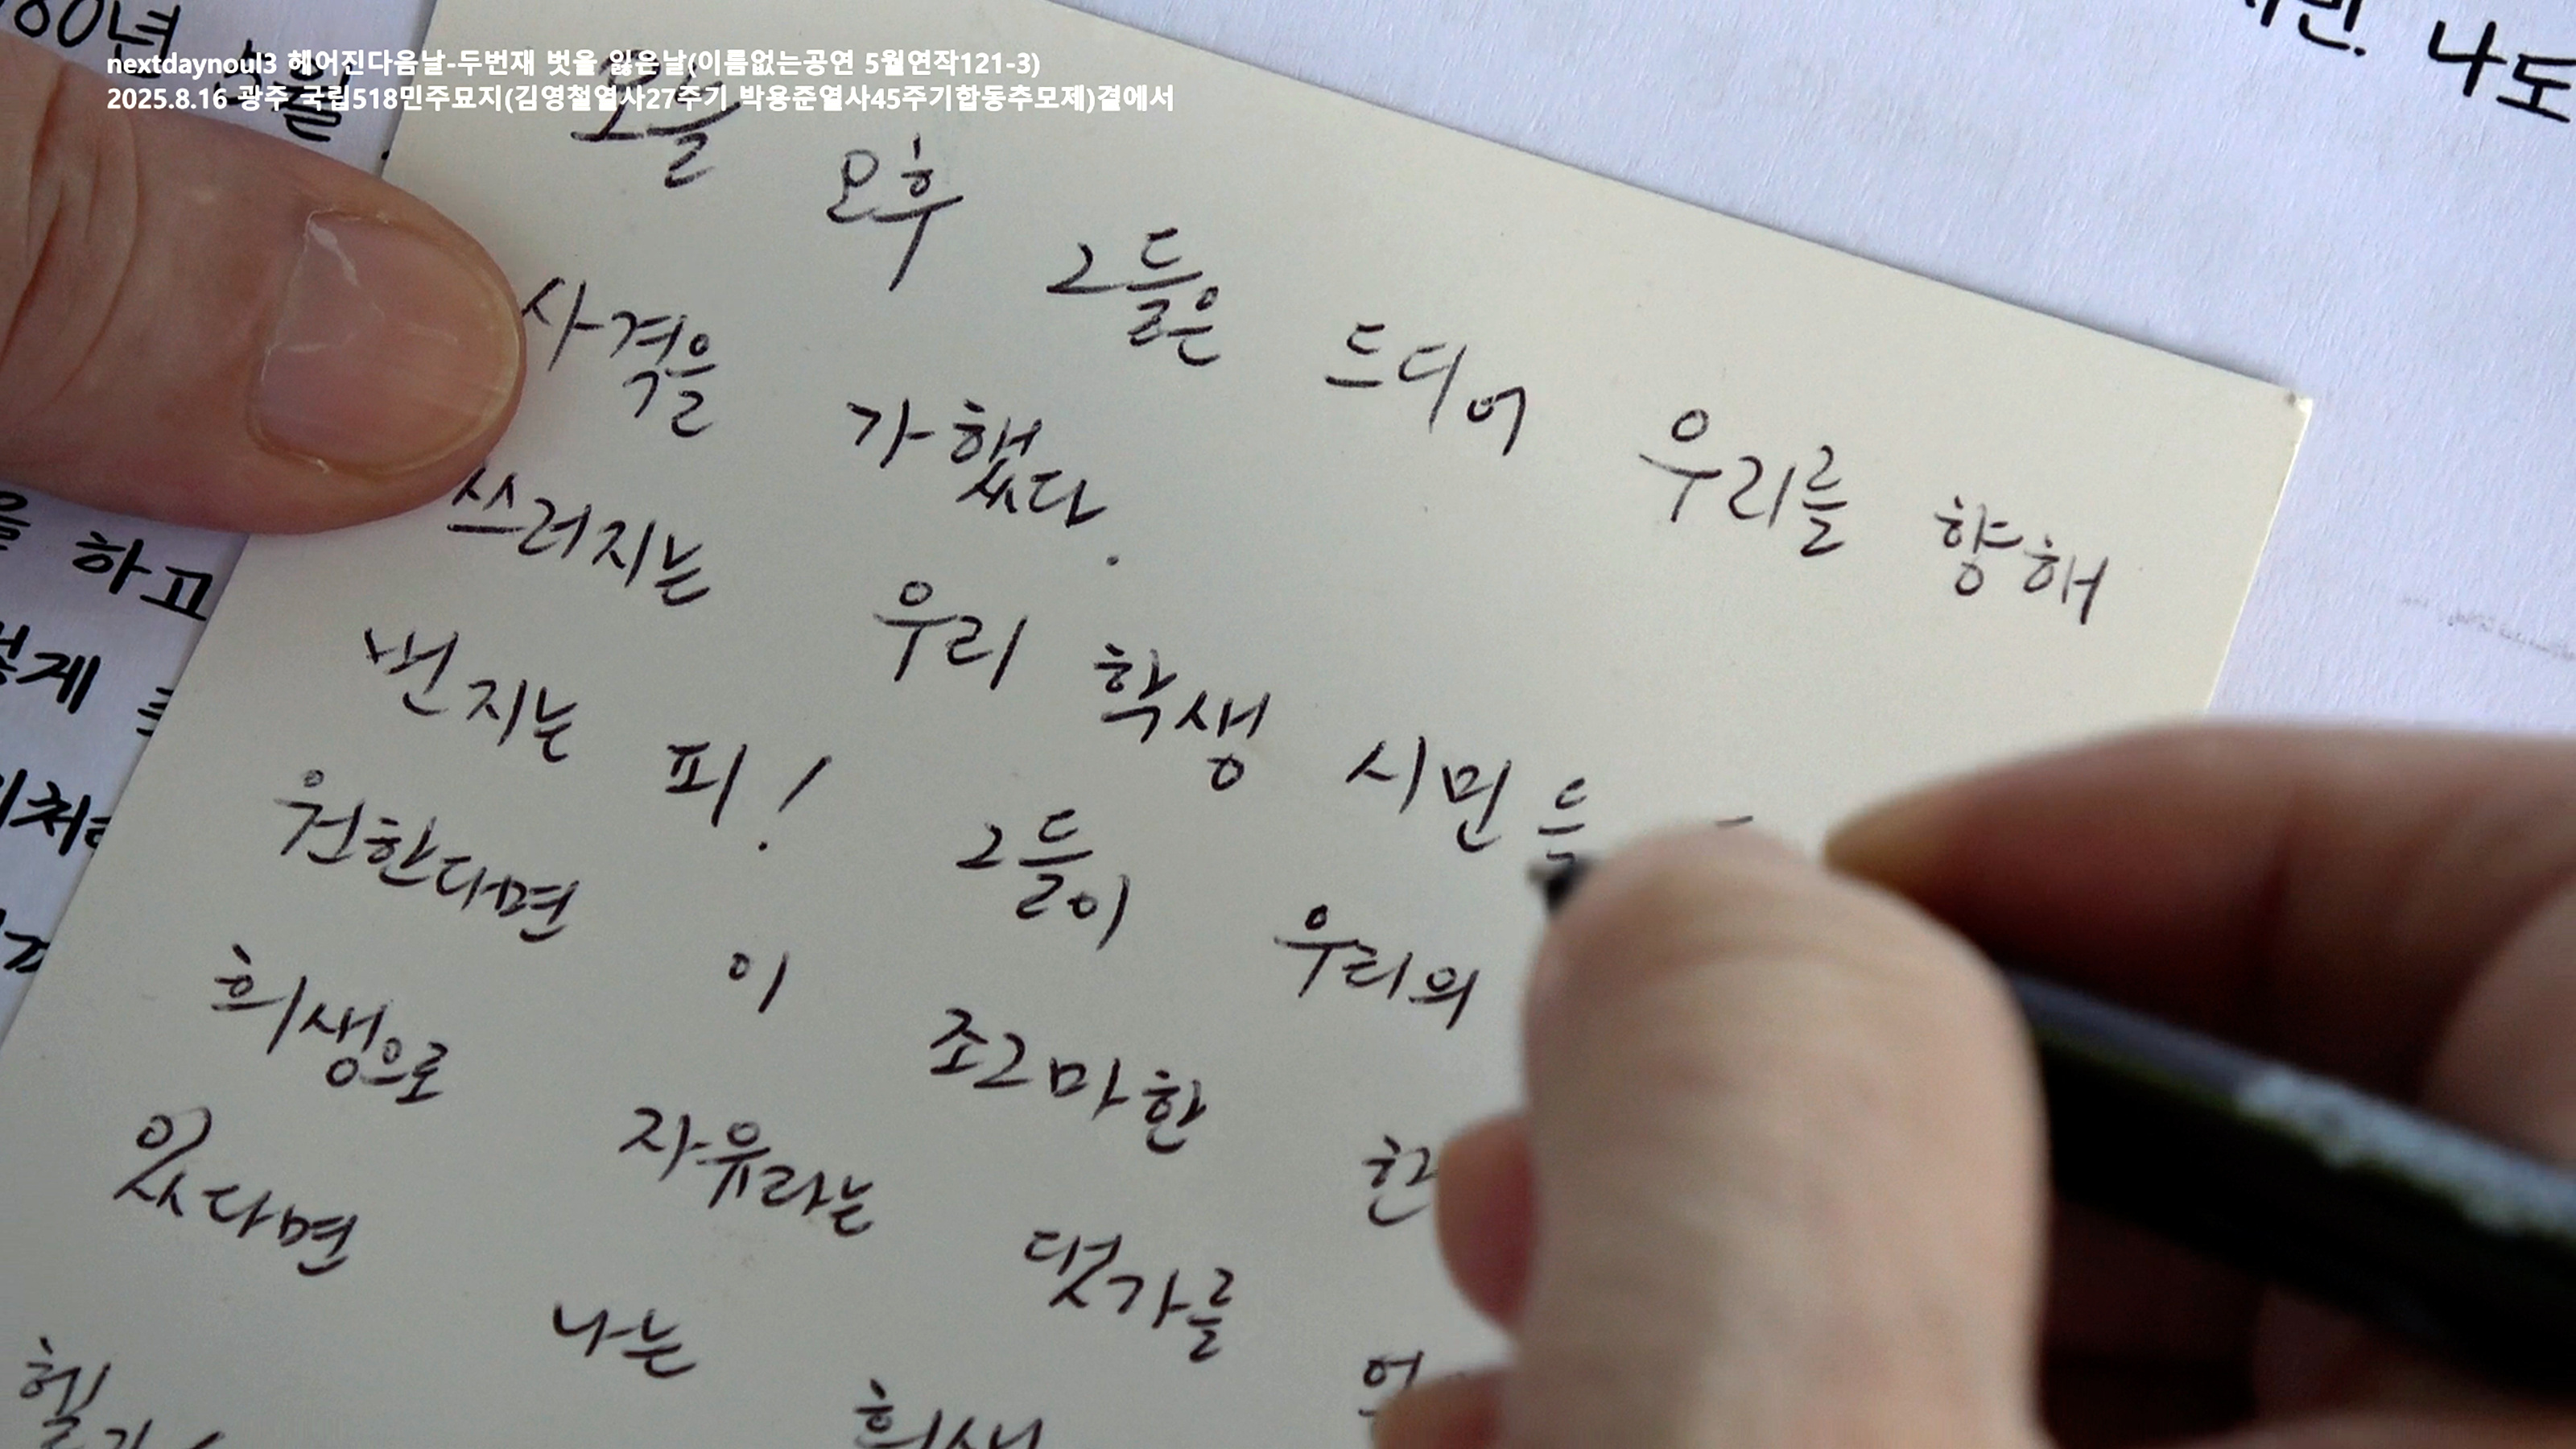 nextdaynoul3 헤어진다음날-두번재 벗을 잃은날(이름없는공연 5월연작121-3)
2025.8.16 광주 국립518민주묘지(김영철열사27주기 박용준열사45주기합동추모제)곁에서
오늘 오후 그들은 드디어 우리를 향해
사격을 가했다.
쓰러지는 우리 학생 시민들
번지는 피! 그들이 우리의
원한다면 이 조그마한 한
희생으로 자유라는 댓가를
있다면 나는 희생
나도
하고